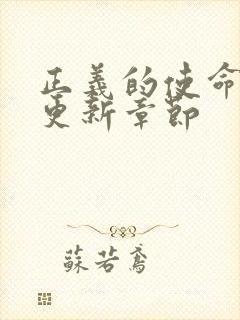 正義的使命
更新章節
蘇若鳶